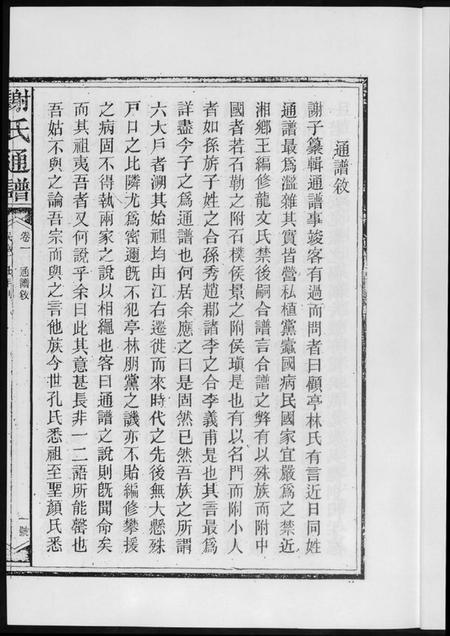 通譜敘
謝子纂輯通譜事竣客有過而問者曰顧亭林氏有言近日同姓
通譜最爲濫雜其實皆營私植黨蠹國病民國家宜嚴爲之禁近
湘鄉王編修龍文氏禁後嗣合譜言合譜之弊有以殊族而附中
國者若石勒之附石樸侯景之附侯瑱是也有以名門而附小人
者如孫旂子姓之合孫秀趙郡諸李之合李義甫是也其言最爲
詳盡今子之爲通譜也何居余應之曰是固然已然吾族之所謂
六大戶者溯其始祖均由江右遷徙而來時代之先後無大懸殊
戶口之比隣尤爲密邇旣不犯亭林朋黨之譏亦不貽編修攀援
之病固不得執兩家之說以相繩也客曰通譜之說則旣聞命矣
而其祖夷吾者又何說乎余曰此其意甚長非一二語所能罄也
吾姑不與之論吾宗而與之言他族今世孔氏悉祖至聖顏氏悉
謝氏通譜
卷一
通譜敘
一號